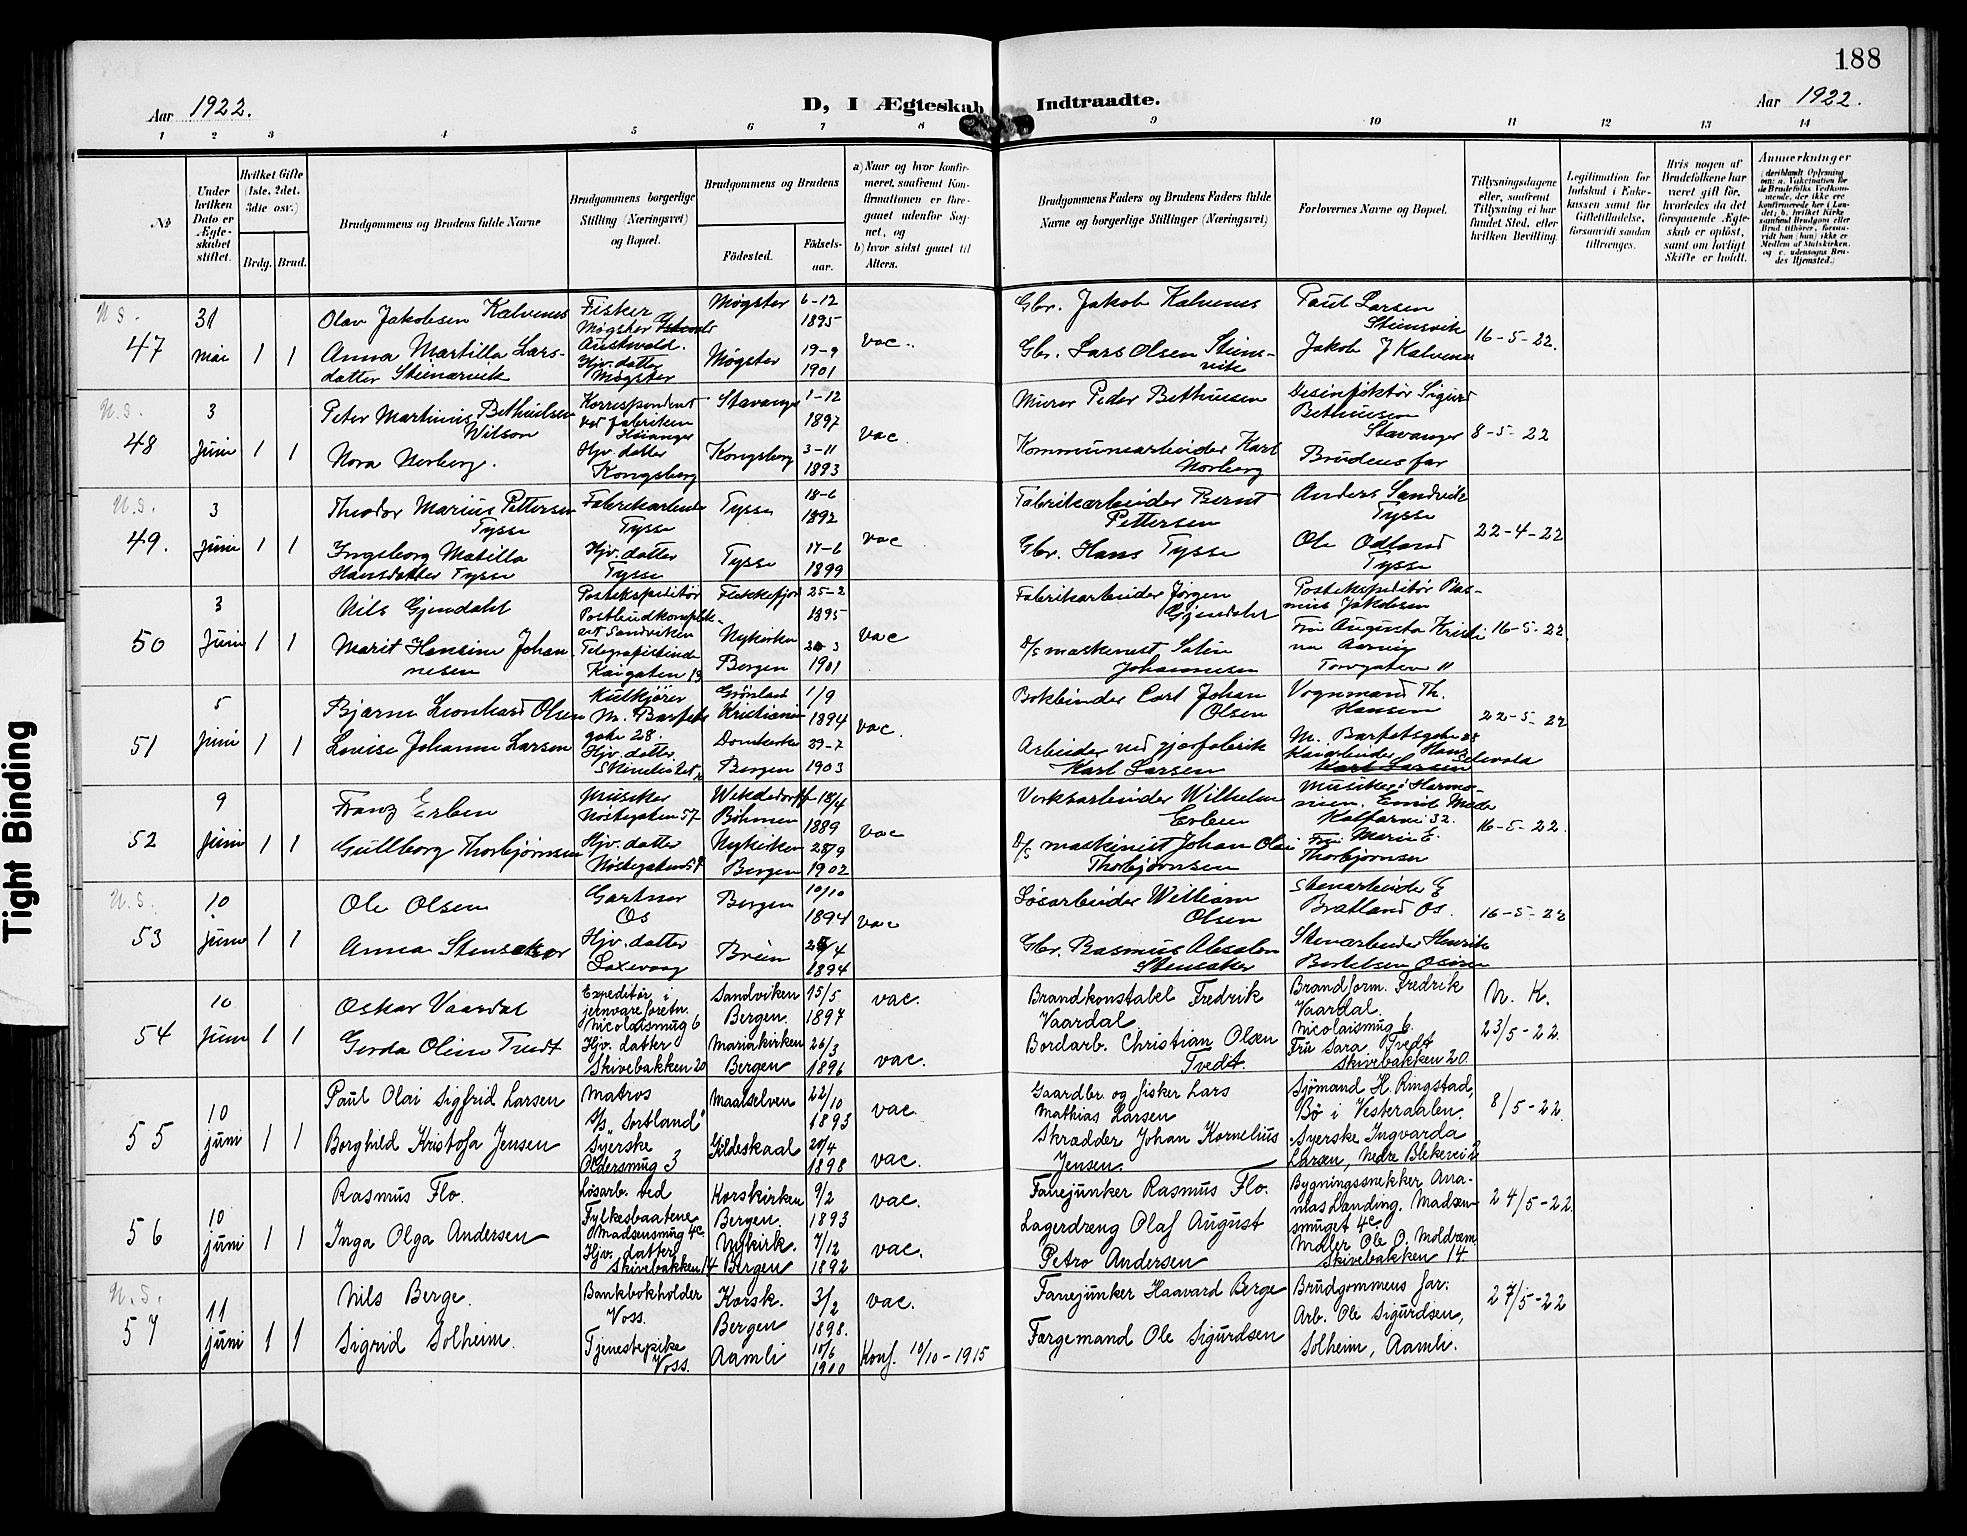 188
Aar 1922.
D, I Ægteskab Indtraadte.
Aar 1922.
1 2 3 4 5 6 7 8 9 10 11 12 13 14
№
Under hvilken Dato er Ægteskabet stiftet.
Hvilket Gifte (1ste, 2det, 3die osv.)
Brdg. Brud.
Brudgommens og Brudens fulde Navne
Brudgommens borgerlige Stilling (Næringsvei) og Bopæl.
Brudgommens og Brudens
Födested.
Födselsaar.
a) Naar og hvor konfirmeret, saafremt Konfirmationen er foregaaet udenfor Sognet, og
b) hvor sidst gaaet til Alters.
Brudgommens Faders og Brudens Faders fulde Navne og borgerlige Stillinger (Næringsvei)
Forlovernes Navne og Bopæl.
Tillysningsdagene eller, saafremt Tillysning ei har fundet Sted, efter hvilken Bevilling.
Legitimation for Indskud i Enkekassen samt for Giftetilladelse, forsaavidt saadan tiltrænges.
Hvis nogen af Brudefolkene har været gift för, hvorledes da det foregaaende Ægteskab er oplöst, samt om lovligt Skifte er holdt.
Anmærkninger
N s.
47
31 Mai 1 1
Olav Jakobsen Kalvenes
Fisker
Møgster
Austevold.
Møgster 6-12 1895
vac.
Gbr. Jakob Kalvenes
Paul Larsen
16-5-22.
Anna Martilla Larsdatter
Hjv. datter
Møgster
Møgster 19-9 1901
Gbr. Lars Olsen
Jakob J Kalvenes
N.s.
48
3 Juni 1 1
Peter Martinius Bethuelsen
Wilson
Korrespondent
ved fabriken
Høianger
Stavanger 1-12 1897
vac.
Murer Peder Bethuelsen
Desinfektør Sigurd
Bethuelsen
Stavanger
8-5-22
Nora Norberg.
Hjv. datter
Kongsberg
Kongsberg 3-11 1893
Kommunearbeider Karl
Norberg
Brudens far
N.s.
49.
3 Juni 1 1
Theodor Marius Pettersen
Tysse
Fabrikarbeider
Tysse
Tysse 18-6 1892
vac
Fabrikarbeider Bernt
Pettersen
Anders Sandvik
Tysse
22-4-22
Ingeborg Matilla
Hansdatter Tysse
Hjv. datter
Tysse
Tysse 17-6 1899
Gbr. Hans Tysse
Ole Odland
Tysse
50
3 Juni 1 1
Nils Gjendahl
Postekspeditør
Sandviken
Flekkefjord 25-2 1895
vac
Fabrikarbeider Jørgen
Gjendahl
Postekspeditør Rasmus
Jakobsen
16-5-22
Marit Hansine Johannesen
Kaigaten 13
Nykirken
Bergen 1901
D/s maskinest
Johannesen
Frk Augusta Kristina
Torvgaten 11
51
5 Juni 1 1
Bjarne Leonhard Olsen
Kulkjører
M. Barfotsgate 28.
Grønland
Kristiania 1/9 1894
vac.
Bokbinder Carl Johan
Olsen
Vognmand Th.
Hansen
M. Barfotsgate 28
22-5-22
Lovise Johanne Larsen
Hjv. datter
Domkirken
Bergen 29-7 1903
Arbeider ved gjærfabrik
Karl Larsen
Kaiarbeider Hans
52
9 Juni 1 1
Franz Erben
Musiker
Nøstegaten 57
Böhmen 18/4 1889
vac
Verksarbeider Wilhelm
Erben
Musiker i Harmonien.
Kalfarvei 32.
16-5-22.
Gullborg Thorbjørnsen
Hjv. datter
Nøstegaten 57
Nykirken
Bergen 28/9 1902
D/s maskinist Johan Olai
Thorbjørnsen
Fru Marie E.
Thorbjørnsen
N.s.
53
10 Juni 1 1
Ole Olsen
Gartner
Os
Bergen 10/10 1894
vac
Løsarbeider William
Olsen
Stenarbeider E
Bratland Os.
16-5-22
Anna
Hjv. datter
Laxevaag
Bruun 4 1894
Gbr. Rasmus Absalon
Stensaker
Stenarbeider Henrik
Bertelsen
54
10 Juni 1 1
Oskar Vaardal
Expeditør i
jernvareforetn.
Nicolaismug 6
Sandviken
Bergen. 15/5 1897
vac.
Brandkonstabel Fredrik
Vaardal
Brandform. Fredrik
Vaardal.
Nicolaismug 6.
N. K.
23/5-22.
Gerda Oline Tvedt
Hjv. datter
Skivebakken 20
Mariakirken
Bergen 26/3 1896
vac.
Bordarb. Christian Olsen
Tvedt.
Fru Sara Tvedt
Skivebakken 20.
55
10 juni 1 1
Paul Olai Sigfrid Larsen
Matros
S/s „Sortland"
Maalselven 22/10 1893
vac.
Gaardbr. og fisker Lars
Mathias Larsen
Sjömand H. Ringstad,
Bö i Vesteraalen.
8/5-22.
Borghild Kristofa Jensen
Syerske
Oldersmug 3
Gildeskaal 20/4 1898
vac.
Skrædder Johan Kornelius
Jensen
Syerske Ingvarda
Larsen, Nedre Blekevei 2
56
10 juni 1 1
Rasmus Flo.
Løsarb. ved
Fylkesbaatene
Madsensmug 4c.
Korskirken
Bergen. 9/2 1893
vac.
Fanejunker Rasmus Flo.
Bygningssnekker Ananias
Landing. Madsensmuget
4c
24/5-22.
Inga Olga Andersen
Hjv. datter
Skivebakken 14
Nykirk.
Bergen 7/12 1892
vac.
Lagerdræng Olaf August
Petro Andersen
Maler Ole O. Moldvæm
Skivebakken 14
N.s.
57
11 juni 1 1
Nils Berge.
Bankbokholder
Voss.
Korsk.
Bergen 3/2 1898.
vac.
Fanejunker Haavard Berge
Brudgommens far.
27/5-22
Sigrid Solheim.
Tjenestepike
Voss.
Aamli 10/6 1900
Konf. 10/10-1915
Fargemand Ole Sigurdsen
Arb. Ole Sigurdsen,
Solheim, Aamli.
Tight Binding